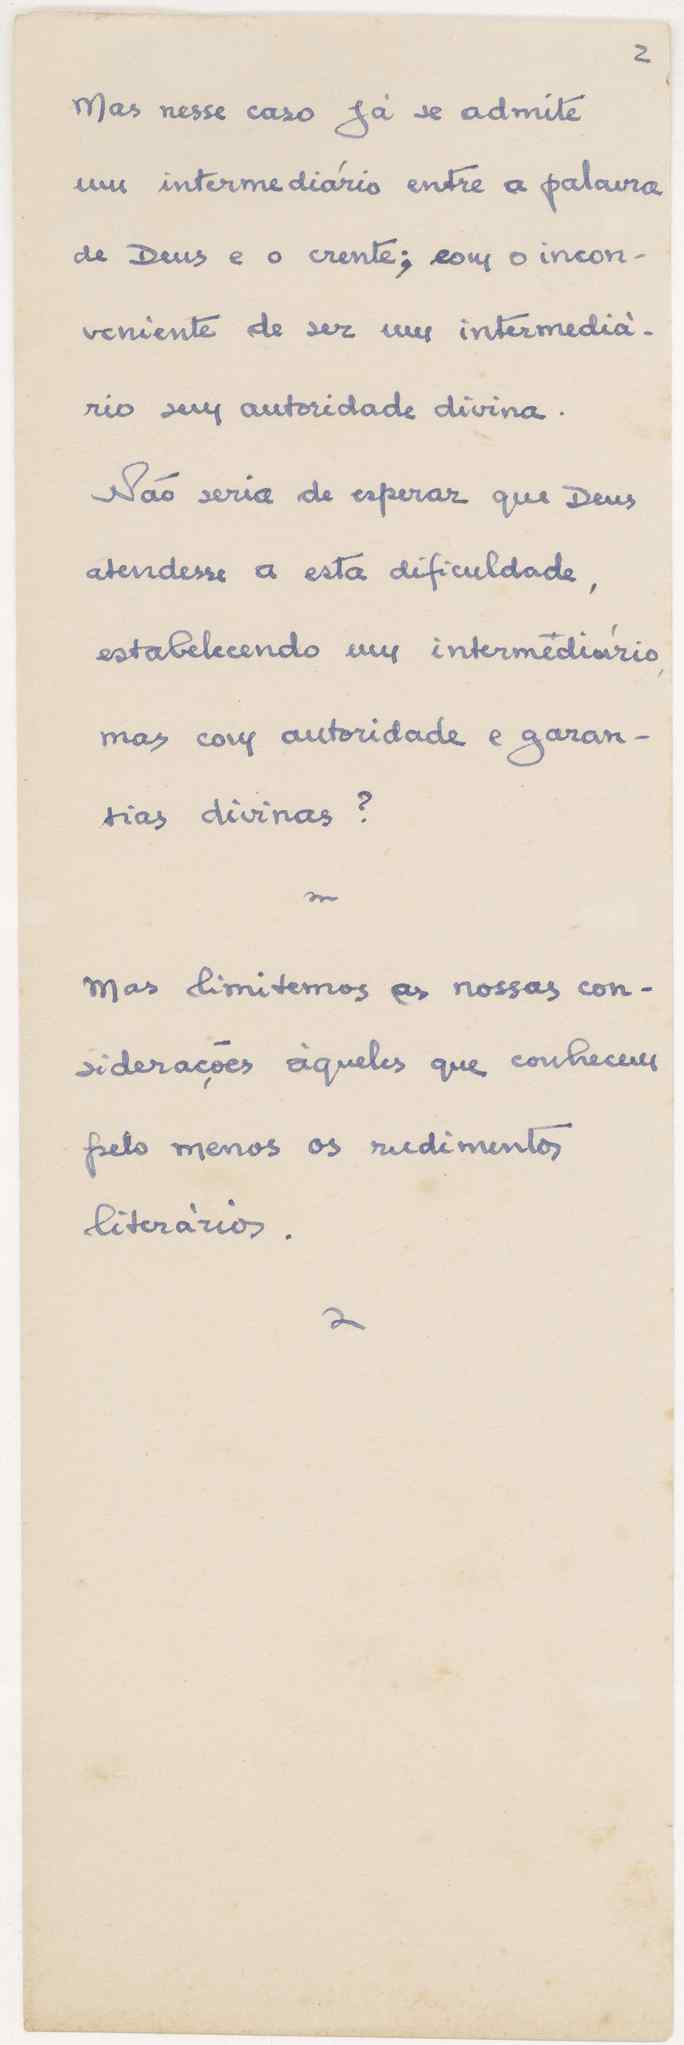 2
Mas nesse caso já se admite
um intermediário entre a palavra
de Deus e o crente; com o incon-
veniente de ser um intermediá-
rio sem autoridade divina.
Não seria de esperar que Deus
atendesse a esta dificuldade,
estabelecendo um intermediário,
mas com autoridade e garan-
tias divinas?
Mas limitemos as nossas con-
siderações àqueles que conhecem
pelo menos os rudimentos
literários.